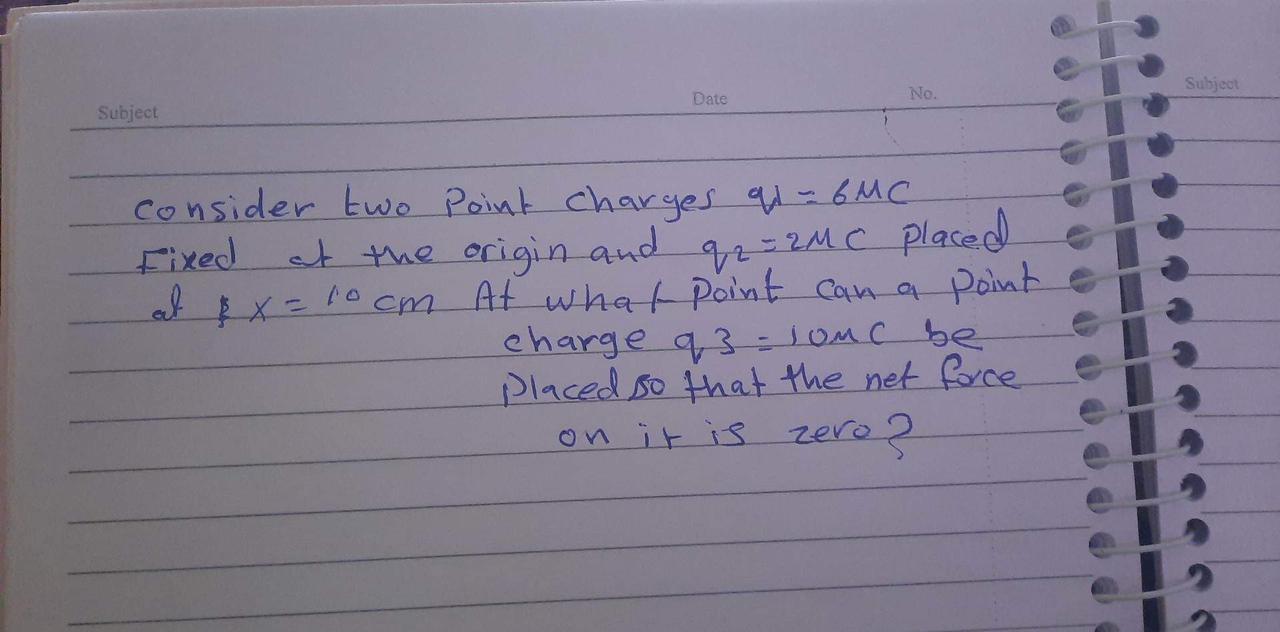 Subject Date No. Subject
Consider two Point Charges q1 = 6MC
Fixed at the origin and q2 = 2MC placed
at x = 10 cm At what Point Can a Point
charge q3 = 10MC be
placed so that the net force
on it is zero?